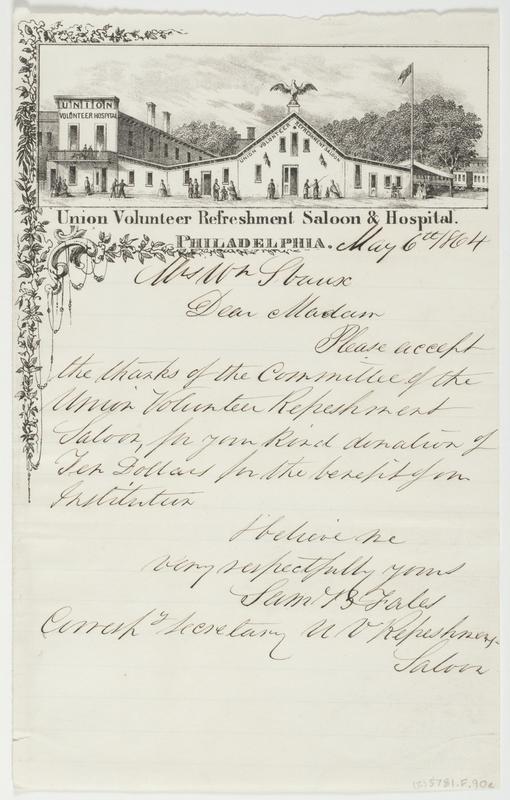 UNION
VOLUNTEER HOSPITAL
UNION VOLUNTEER REFRESHMENT SALOON
Union Volunteer Refreshment Saloon & Hospital.
PHILADELPHIA. May 6th 1864
Mrs Wm
Dear Madam
Please accept
the thanks of the Committee of the
Union Volunteer Refreshment
Saloon, for your kind donation of
Ten Dollars for the benefit of our
Institution
I believe me
very respectfully yours
Saml B Fales
Corresp'g Secretary U V Refreshment
Saloon
5781.F.90c